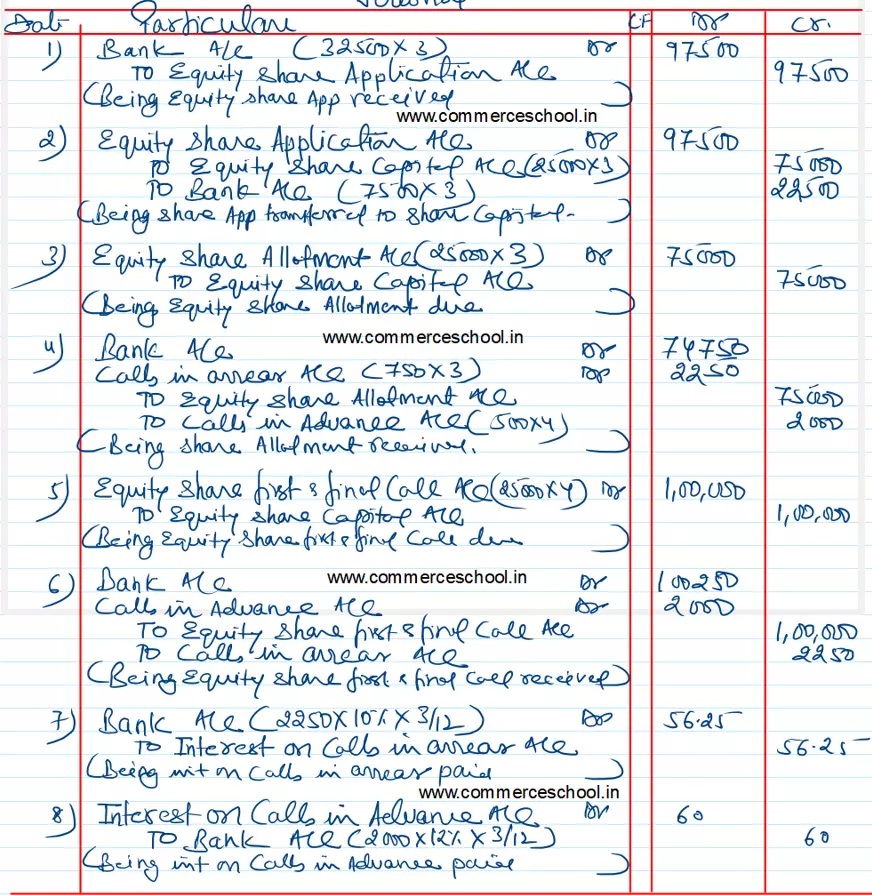 Solution
Date Particulars CF Dr Cr.
1) Bank A/c (32500X3) Dr 97500
To Equity Share Application A/c 97500
(Being Equity share App received)
www.commerceschool.in
2) Equity Share Application A/c Dr 97500
To Equity Share Capital A/c (25000X3) 75000
To Bank A/c (7500X3) 22500
(Being Share App transferred to Share Capital-)
3) Equity Share Allotment A/c (25000X3) Dr 75000
To Equity Share Capital A/c 75000
(Being Equity Share Allotment due)
www.commerceschool.in
4) Bank A/c Dr 74750
Calls in arrear A/c (750X3) Dr 2250
To Equity Share Allotment A/c 75000
To Calls in Advance A/c (500X4) 2000
(Being share Allotment received.)
5) Equity Share first & final Call A/c (25000X4) Dr 1,00,000
To Equity Share Capital A/c 1,00,000
(Being Equity Share first & final Call due)
www.commerceschool.in
6) Bank A/c Dr 100250
Calls in Advance A/c Dr 2000
To Equity Share first & final Call A/c 1,00,000
To Calls in arrear A/c 2250
(Being Equity Share first & final Call received)
7) Bank A/c (2250X10% X 3/12) Dr 56.25
To Interest on Calls in arrear A/c 56.25
(Being int on Calls in arrear paid)
www.commerceschool.in
8) Interest on Calls in Advance A/c Dr 60
To Bank A/c (2000X12% X 3/12) 60
(Being int on Calls in Advance paid)